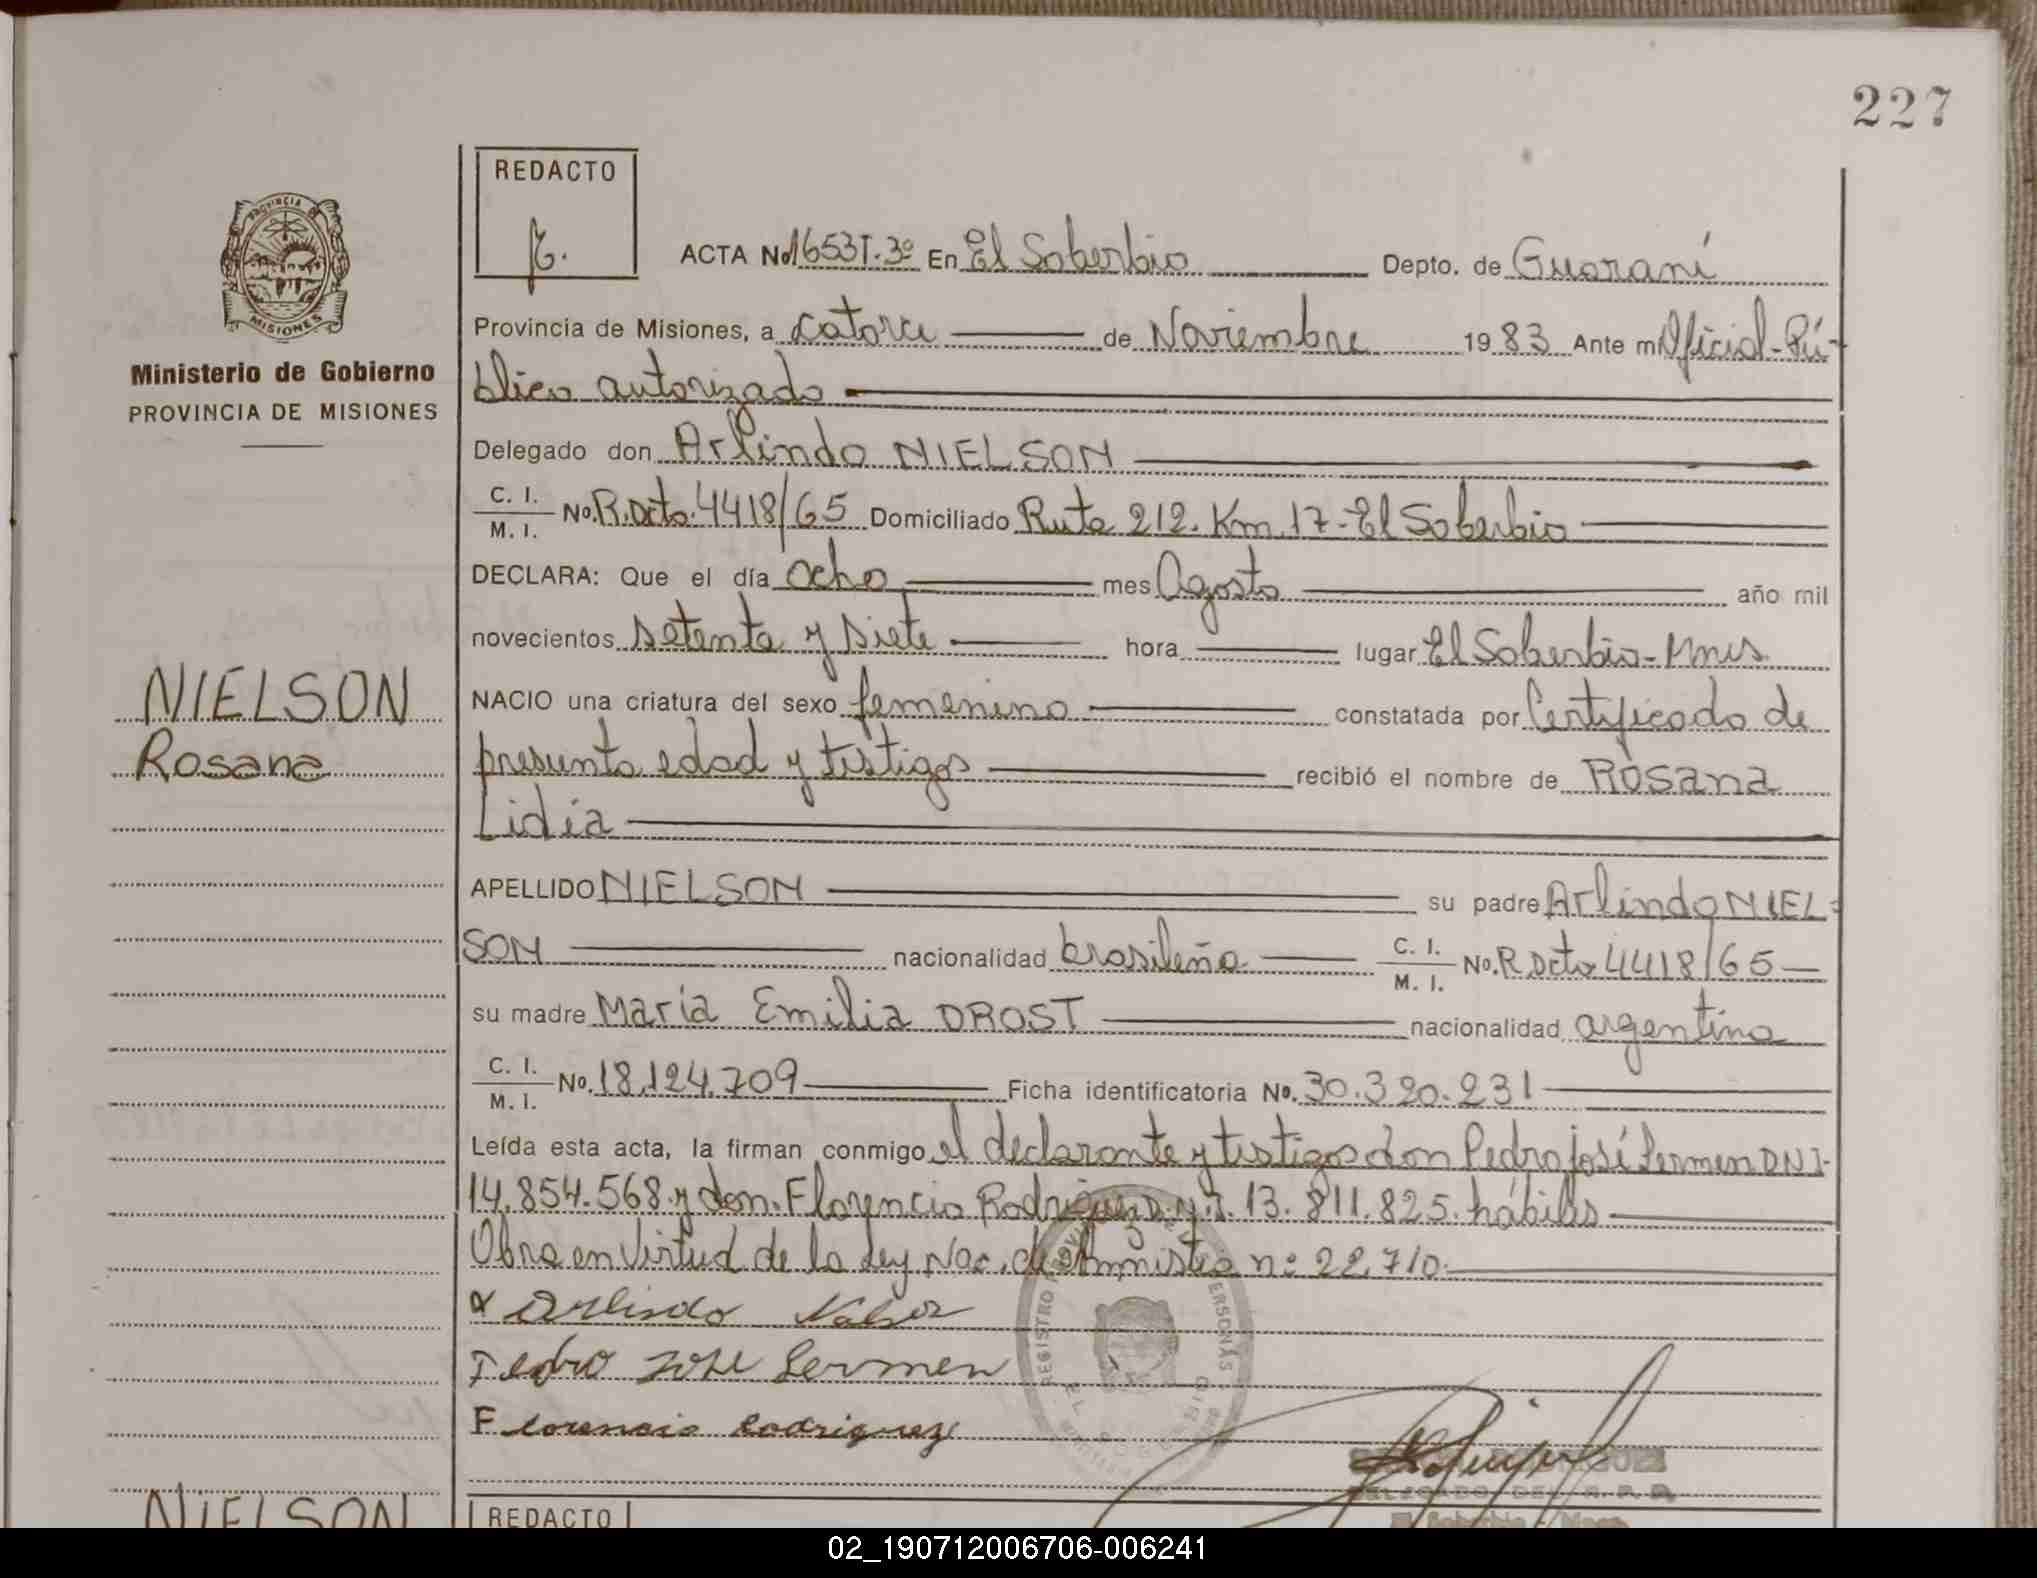 227
REDACTO
ACTA No 1653T.3º En El Soberbio Depto. de Guaraní
Provincia de Misiones, a catorce de Noviembre 1983 Ante mi Oficial-Pú-
blico autorizado
Delegado don Arlindo NIELSON
C. I.
M. I. No. R.Dcto.4418/65 Domiciliado Ruta 212. Km.17-El Soberbio
DECLARA: Que el día ocho mes Agosto año mil
novecientos setenta y siete hora lugar El Soberbio-Mnes
NACIO una criatura del sexo femenino constatada por Certificado de
presunta edad y testigos recibió el nombre de Rosana
Lidia
APELLIDO NIELSON su padre Arlindo NIEL-
SON nacionalidad brasileña C. I.
M. I. No. R.Dcto 4418/65
su madre María Emilia DROST nacionalidad argentina
C. I.
M. I. No. 18.124.709 Ficha identificatoria No. 30.320.231
Leída esta acta, la firman conmigo el declarante y testigos don Pedro José Sermen DNI-
14.854.568 y don Florencio Rodriguez D.N.I. 13.811.825. hábiles
Obra en Virtud de la Ley Nac. de Amnistia nº 22.710.
Arlindo
Pedro Jose Sermen
Florencio Rodriguez
PROVINCIA DE
MISIONES
Ministerio de Gobierno
PROVINCIA DE MISIONES
NIELSON
Rosana
NIELSON
REDACTO
02_190712006706-006241